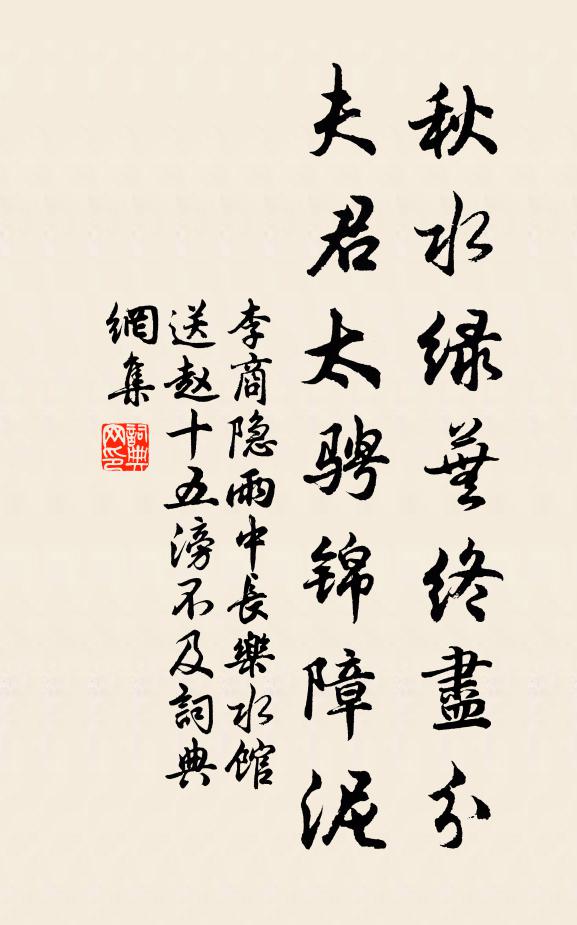 秋水绿蕪终盡分
夫君太骋锦障泥
李商隐雨中長樂水馆
送赵十五滂不及詞典
網集
詞典
网印